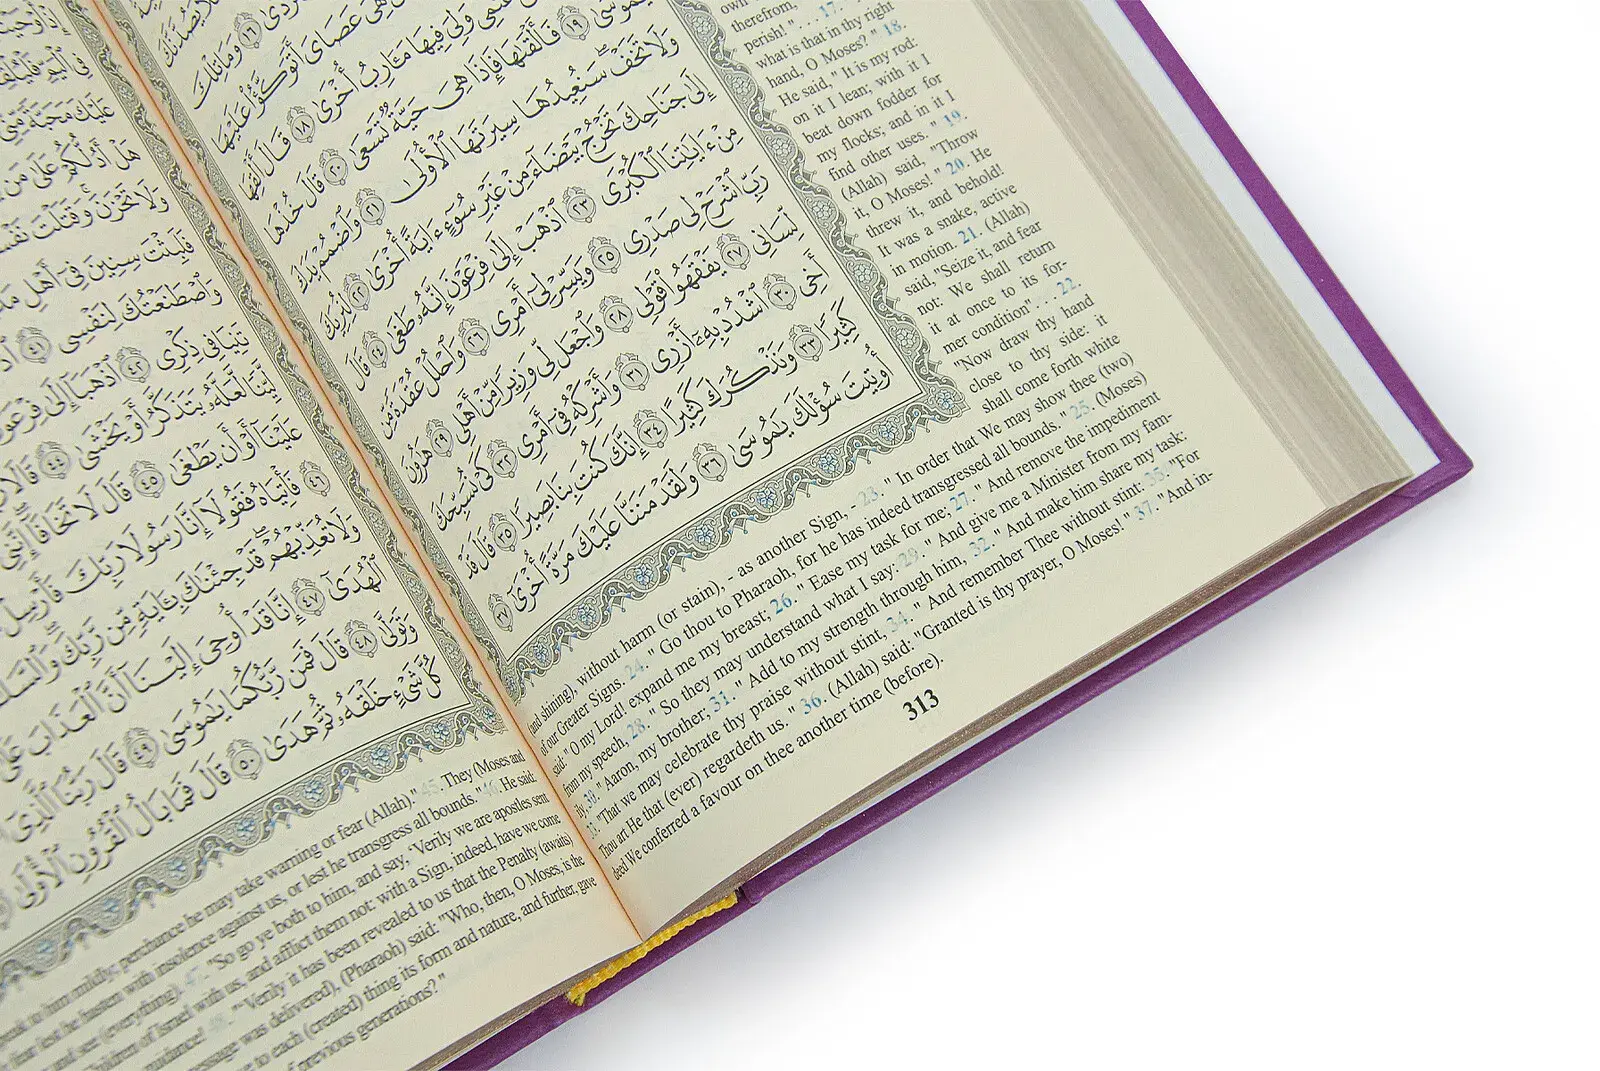 يَصُدَّنَّكَ
١٦ وَمَا تِلْكَ
هِىَ عَصَاىَ أَتَوَكَّؤُا۟ عَلَيْهَا
وَلِىَ فِيهَا مَـَٔارِبُ أُخْرَىٰ ١٨ قَالَ أَلْقِهَا
يَٰمُوسَىٰ ١٩ فَأَلْقَىٰهَا فَإِذَا هِىَ حَيَّةٌ تَسْعَىٰ ٢٠ قَالَ خُذْهَا
وَلَا تَخَفْ سَنُعِيدُهَا سِيرَتَهَا ٱلْأُولَىٰ ٢١ وَٱضْمُمْ يَدَكَ
إِلَىٰ جَنَاحِكَ تَخْرُجْ بَيْضَآءَ مِنْ غَيْرِ سُوٓءٍ ءَايَةً أُخْرَىٰ ٢٢ لِنُرِيَكَ
مِنْ ءَايَٰتِنَا ٱلْكُبْرَى ٢٣ ٱذْهَبْ إِلَىٰ فِرْعَوْنَ إِنَّهُۥ طَغَىٰ ٢٤ قَالَ
رَبِّ ٱشْرَحْ لِى صَدْرِى ٢٥ وَيَسِّرْ لِىٓ أَمْرِى ٢٦ وَٱحْلُلْ عُقْدَةً مِّن
لِّسَانِى ٢٧ يَفْقَهُوا۟ قَوْلِى ٢٨ وَٱجْعَل لِّى وَزِيرًا مِّنْ أَهْلِى ٢٩ هَٰرُونَ
أَخِى ٣٠ ٱشْدُدْ بِهِۦٓ أَزْرِى ٣١ وَأَشْرِكْهُ فِىٓ أَمْرِى ٣٢ كَىْ نُسَبِّحَكَ
كَثِيرًا ٣٣ وَنَذْكُرَكَ كَثِيرًا ٣٤ إِنَّكَ كُنتَ بِنَا بَصِيرًا ٣٥ قَالَ قَدْ
أُوتِيتَ سُؤْلَكَ يَٰمُوسَىٰ ٣٦ وَلَقَدْ مَنَنَّا عَلَيْكَ مَرَّةً أُخْرَىٰٓ ٣٧
own
therefrom,
perish!" . . . 17.
what is that in thy right
hand, O Moses?" 18.
He said," It is my rod:
on it I lean; with it I
beat down fodder for
my flocks; and in it I
find other uses. " 19.
(Allah) said, "Throw
it, O Moses!" 20. He
threw it, and behold!
It was a snake, active
in motion. 21. (Allah)
said, "Seize it, and fear
not: We shall return
it at once to its for-
mer condition" . . . 22.
"Now draw thy hand
close to thy side: it
shall come forth white
(and shining), without harm (or stain), - as another Sign, - 23. " In order that We may show thee (two)
of our Greater Signs. 24. " Go thou to Pharaoh, for he has indeed transgressed all bounds. " 25. (Moses)
said: "O my Lord! expand me my breast; 26. " Ease my task for me; 27. " And remove the impediment
from my speech, 28. " So they may understand what I say: 29. " And give me a Minister from my fam-
ily, 30. " Aaron, my brother; 31. " Add to my strength through him, 32. " And make him share my task:
33. "That we may celebrate thy praise without stint, 34. " And remember Thee without stint: 35. "For
Thou art He that (ever) regardeth us. " 36. (Allah) said: "Granted is thy prayer, O Moses! " 37. "And in-
deed We conferred a favour on thee another time (before).
313
عَلَيْكَ مَحَبَّةً مِّنِّى
هَلْ أَدُلُّكُمْ عَلَىٰ مَن
وَلَا تَحْزَنَ وَقَتَلْتَ نَفْسًا
فَلَبِثْتَ سِنِينَ فِىٓ أَهْلِ
وَٱصْطَنَعْتُكَ لِنَفْسِى ٤١
تَنِيَا فِى ذِكْرِى ٤٢ ٱذْهَبَآ إِلَىٰ فِرْعَوْنَ
لَّيِّنًا لَّعَلَّهُۥ يَتَذَكَّرُ أَوْ يَخْشَىٰ ٤٤ قَالَا
عَلَيْنَآ أَوْ أَن يَطْغَىٰ ٤٥ قَالَ لَا تَخَافَآ إِنَّنِى
٤٦ فَأْتِيَاهُ فَقُولَآ إِنَّا رَسُولَا رَبِّكَ فَأَرْسِلْ
وَلَا تُعَذِّبْهُمْ قَدْ جِئْنَٰكَ بِـَٔايَةٍ مِّن رَّبِّكَ وَٱلسَّلَٰمُ
ٱلْهُدَىٰٓ ٤٧ إِنَّا قَدْ أُوحِىَ إِلَيْنَآ أَنَّ ٱلْعَذَابَ عَلَىٰ
وَتَوَلَّىٰ ٤٨ قَالَ فَمَن رَّبُّكُمَا يَٰمُوسَىٰ ٤٩ قَالَ رَبُّنَا ٱلَّذِىٓ
كُلَّ شَىْءٍ خَلْقَهُۥ ثُمَّ هَدَىٰ ٥٠ قَالَ فَمَا بَالُ ٱلْقُرُونِ ٱلْأُولَىٰ
to him mildly; perchance he may take warning or fear (Allah)." 45. They (Moses and
fear lest he hasten with insolence against us, or lest he transgress all bounds. "46. He said:
and see (everything). 47. "So go ye both to him, and say, 'Verily we are apostles sent
Children of Israel with us, and afflict them not: with a Sign, indeed, have we come
guidance! 48. " 'Verily it has been revealed to us that the Penalty (awaits)
message was delivered), (Pharaoh) said: "Who, then, O Moses, is the
to each (created) thing its form and nature, and further, gave
previous generations?"